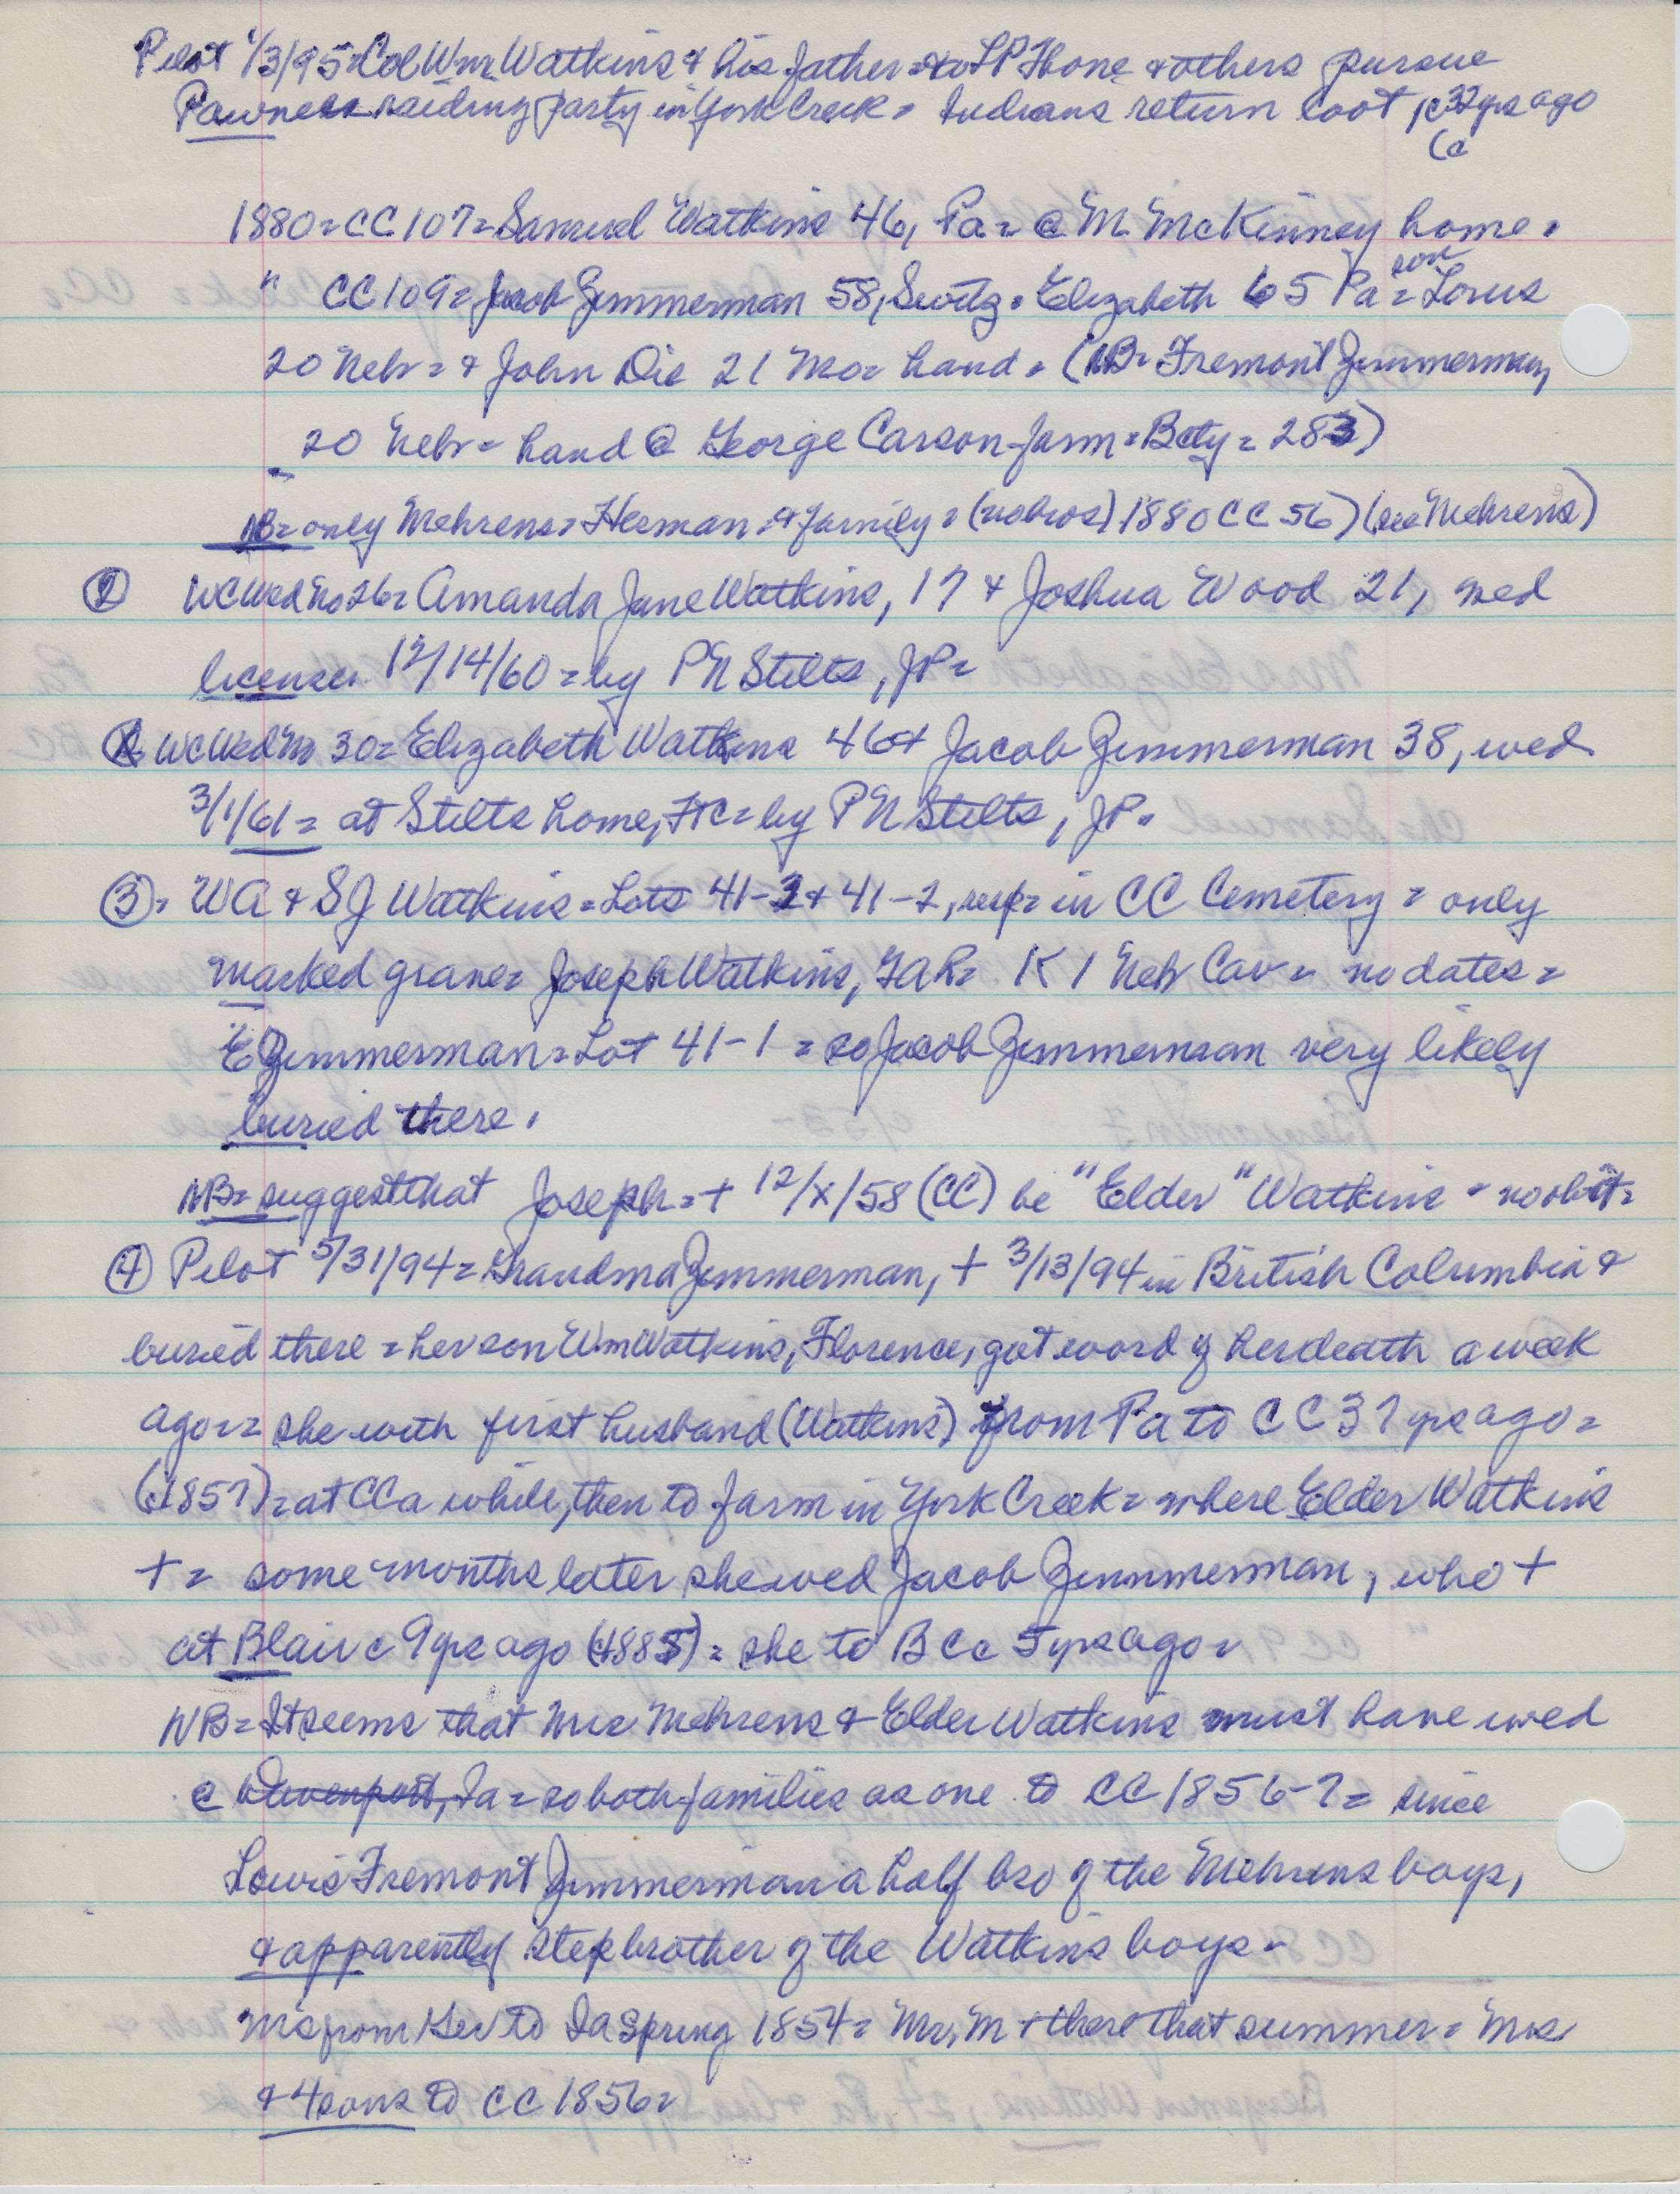 Pilot 1/3/95 = Col Wm Watkins & his father = to LP Thone & others pursue
Pawnees raiding party in York Creek = Indians return loot, c 37 yrs ago
(c
1880 = CC 107 = Samuel Watkins 46, Pa = @ M. McKinney home.
" CC 109 = Jacob Zimmerman 58, Switz = Elizabeth 65 Pa = son Lorus
20 Nebr = & John Die 21 Mo = hand = (NB = Fremont Zimmerman,
20 Nebr = hand @ George Carson farm = Bcty = 283)
NB = only Mehrens = Herman = & family = (no bros) 1880 CC 56) (see Mehrens)
① WC Wed No 26 = Amanda Jane Watkins, 17 & Joshua Wood 21, wed
license 12/14/60 = by PN Stilts, JP =
② WC Wed No 30 = Elizabeth Watkins 46 & Jacob Zimmerman 38, wed
3/1/61 = at Stilts home, FtC = by PN Stilts, JP.
③ = WA & SJ Watkins = Lots 41-3 & 41-2, resp = in CC Cemetery = only
marked grave = Joseph Watkins, GAR = K 1 Neb Cav = no dates =
E Zimmerman = Lot 41-1 = so Jacob Zimmerman very likely
buried there.
NB = suggest that Joseph = + 12/x/58 (CC) be "Elder" Watkins = no obit =
④ Pilot 5/31/94 = Grandma Zimmerman, + 3/13/94 in British Columbia &
buried there = her son Wm Watkins, Florence, got word of her death a week
ago = she with first husband (Watkins) from Pa to CC 37 yrs ago =
(c1857) = at CC a while, then to farm in York Creek = where Elder Watkins
+ = some months later she wed Jacob Zimmerman, who +
at Blair c 9 yrs ago (c1885) = she to BC c 5 yrs ago =
NB = It seems that Mrs Mehrens & Elder Watkins must have wed
c Davenport, Ia = so both families as one to CC 1856-7 = since
Lewis Fremont Zimmerman a half bro of the Mehrens boys,
& apparently stepbrother of the Watkins boys =
Ms from Ger to Ia Spring 1854 = Mr. M + there that summer = Mrs
& 4 sons to CC 1856 =